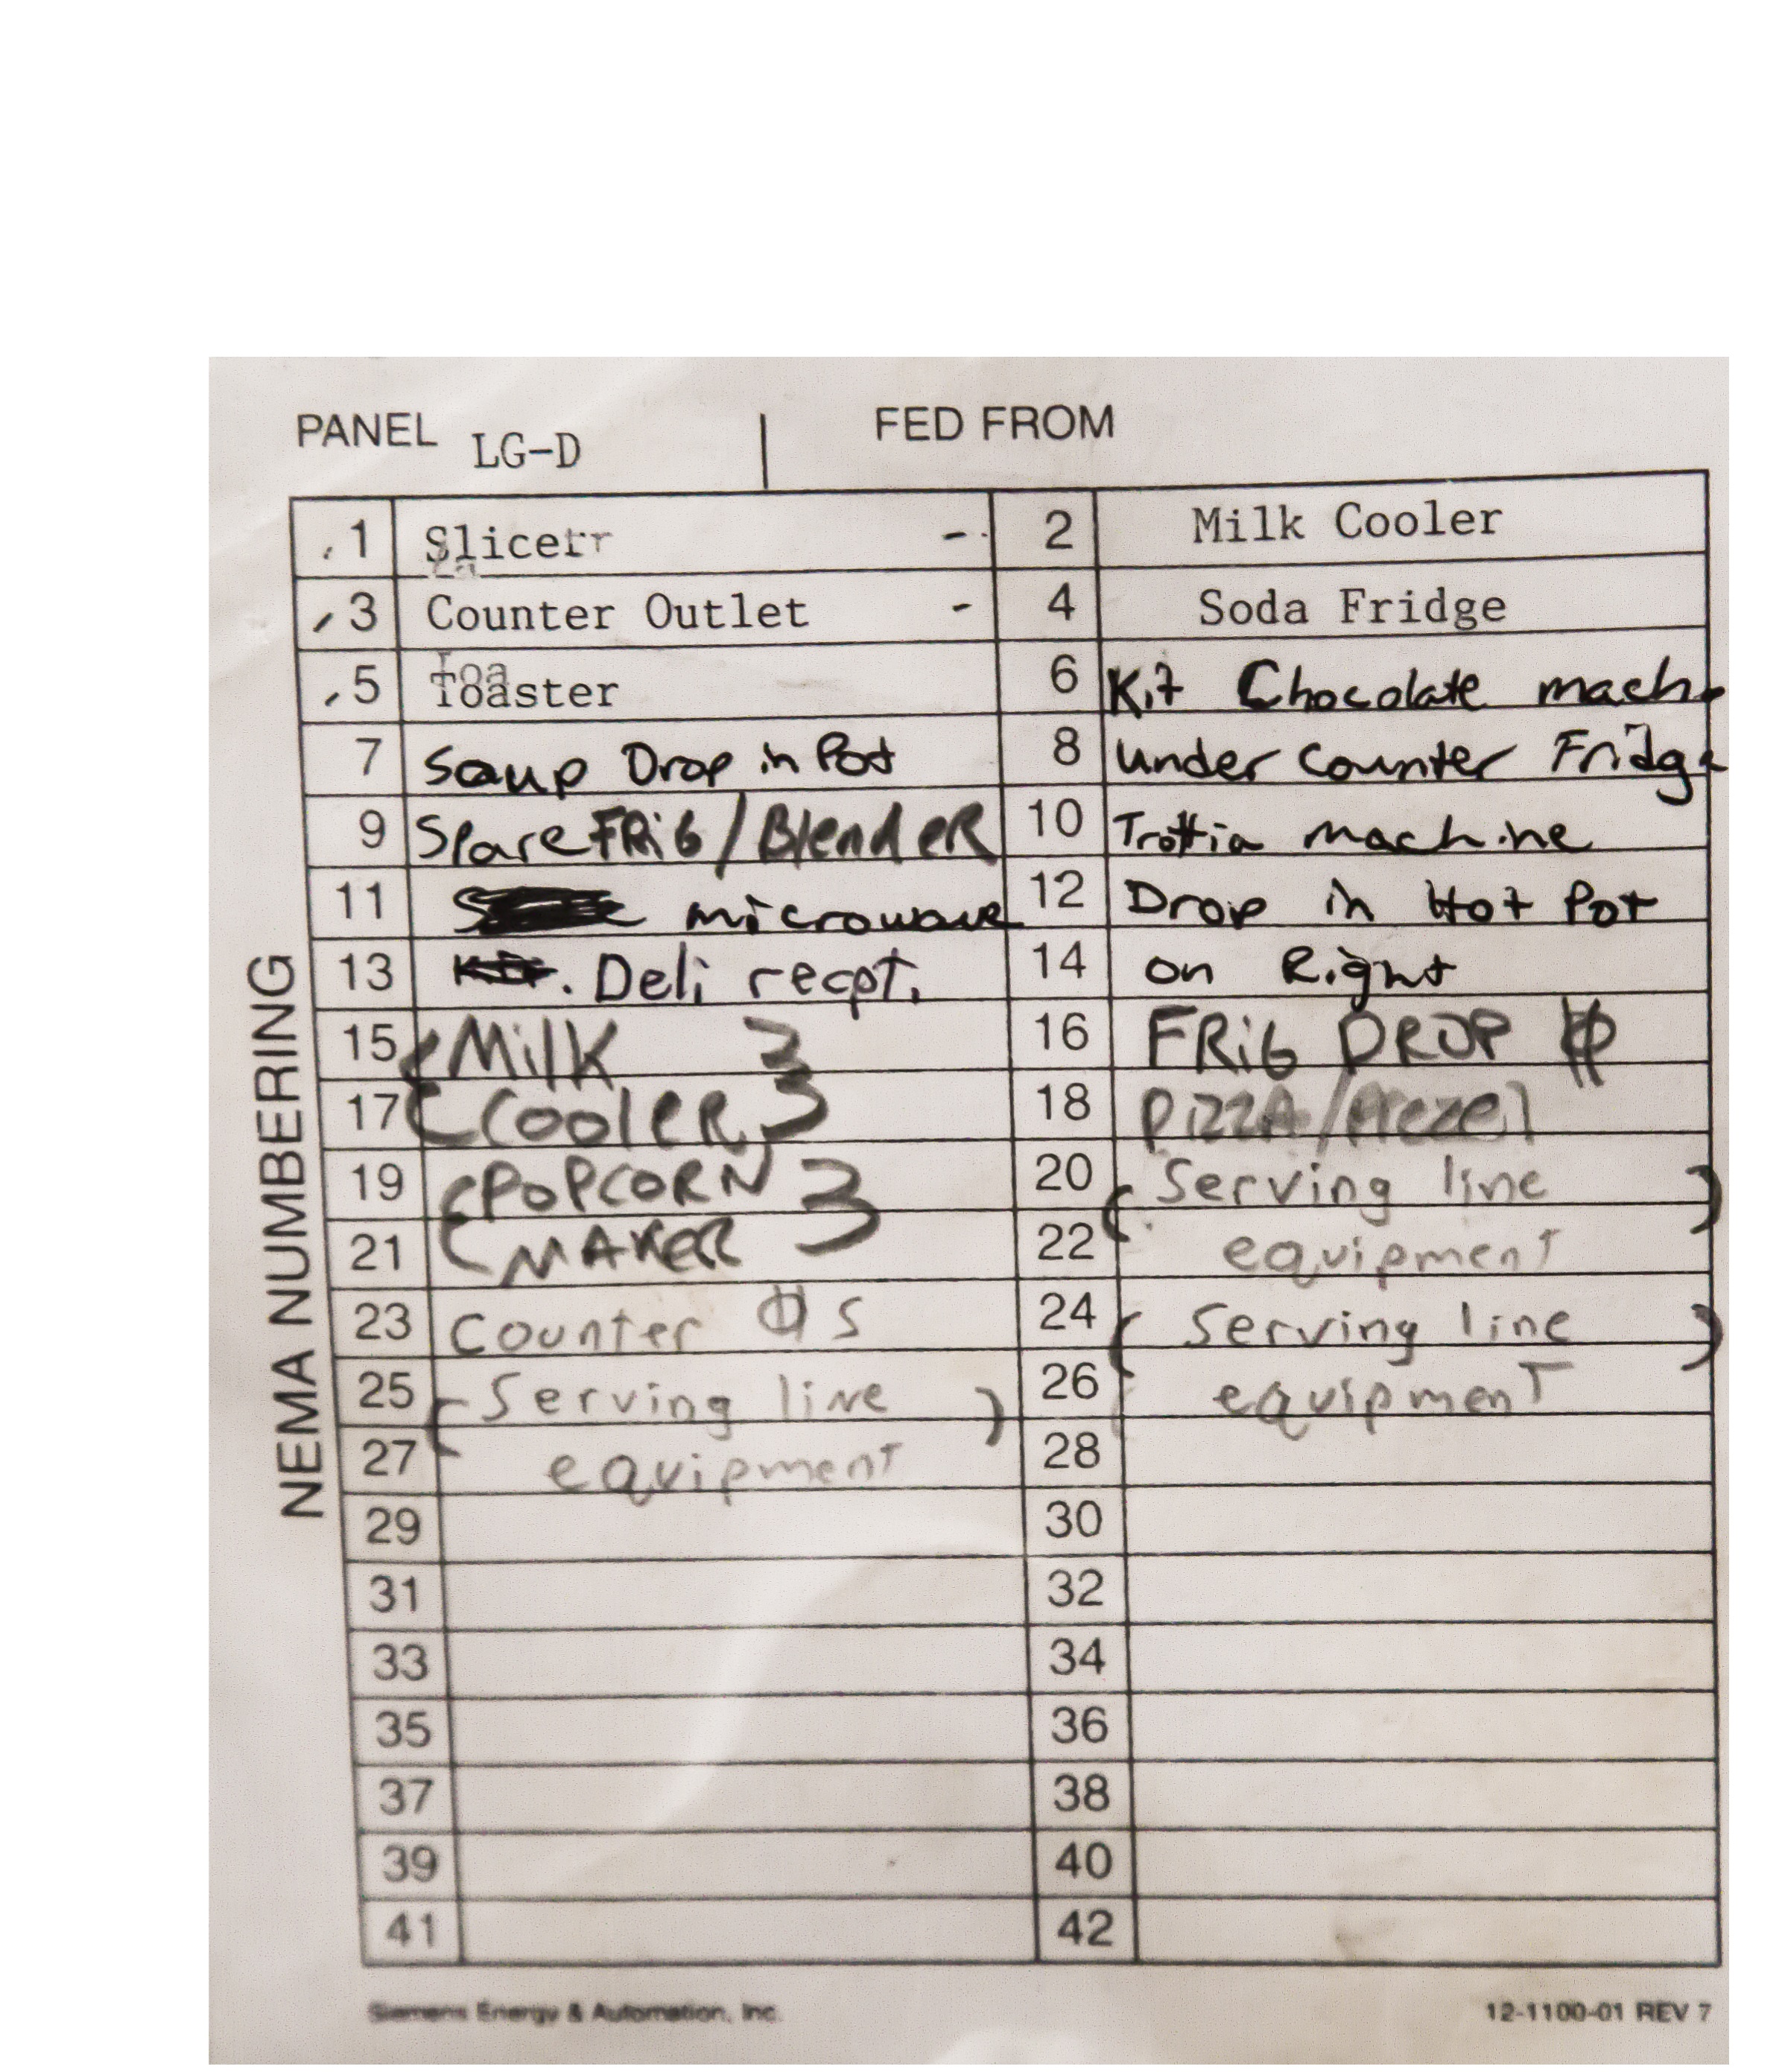 PANEL LG-D FED FROM
1 Slicer - 2 Milk Cooler
3 Counter Outlet - 4 Soda Fridge
5 Toaster 6 Kit Chocolate mach
7 Soup Drop in Pot 8 under counter Fridge
9 Spare FRiG/BlendeR 10 machine
11 microwave 12 Drop in Hot Pot
13 Deli recpt. 14 on Right
15 MilK 16 FRiG DROP
17 CooleR 18 PiZZA/Prezel
19 POPCORN 20 Serving line
21 MAKeR 22 equipment
23 Counter 24 Serving line
25 Serving line 26 equipment
27 equipment 28
29 30
31 32
33 34
35 36
37 38
39 40
41 42
NEMA NUMBERING
Siemens Energy & Automation, Inc. 12-1100-01 REV 7